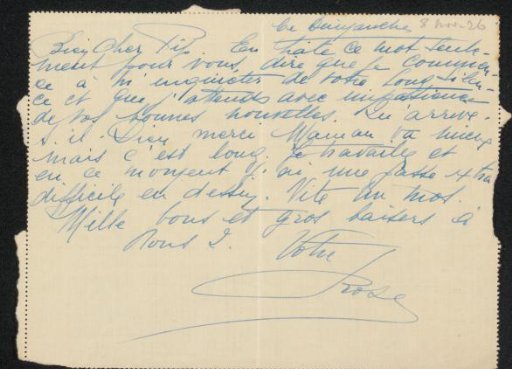 Ce Dimanche 8 nov. 26
Bien Cher Pip. En hâte ce mot seule-
ment pour vous dire que je commen-
ce à m'inquieter de votre long silen-
ce et que j'attends avec impatience
de vos bonnes nouvelles. Qu'arrive-
t-il. Dieu merci Maman va mieux
mais c'est long. Je travaille et
en ce moment j'ai une passe extra
difficile en dessin. Vite un mot.
Mille bons et gros baisers à
vous 2. Votre
Rose